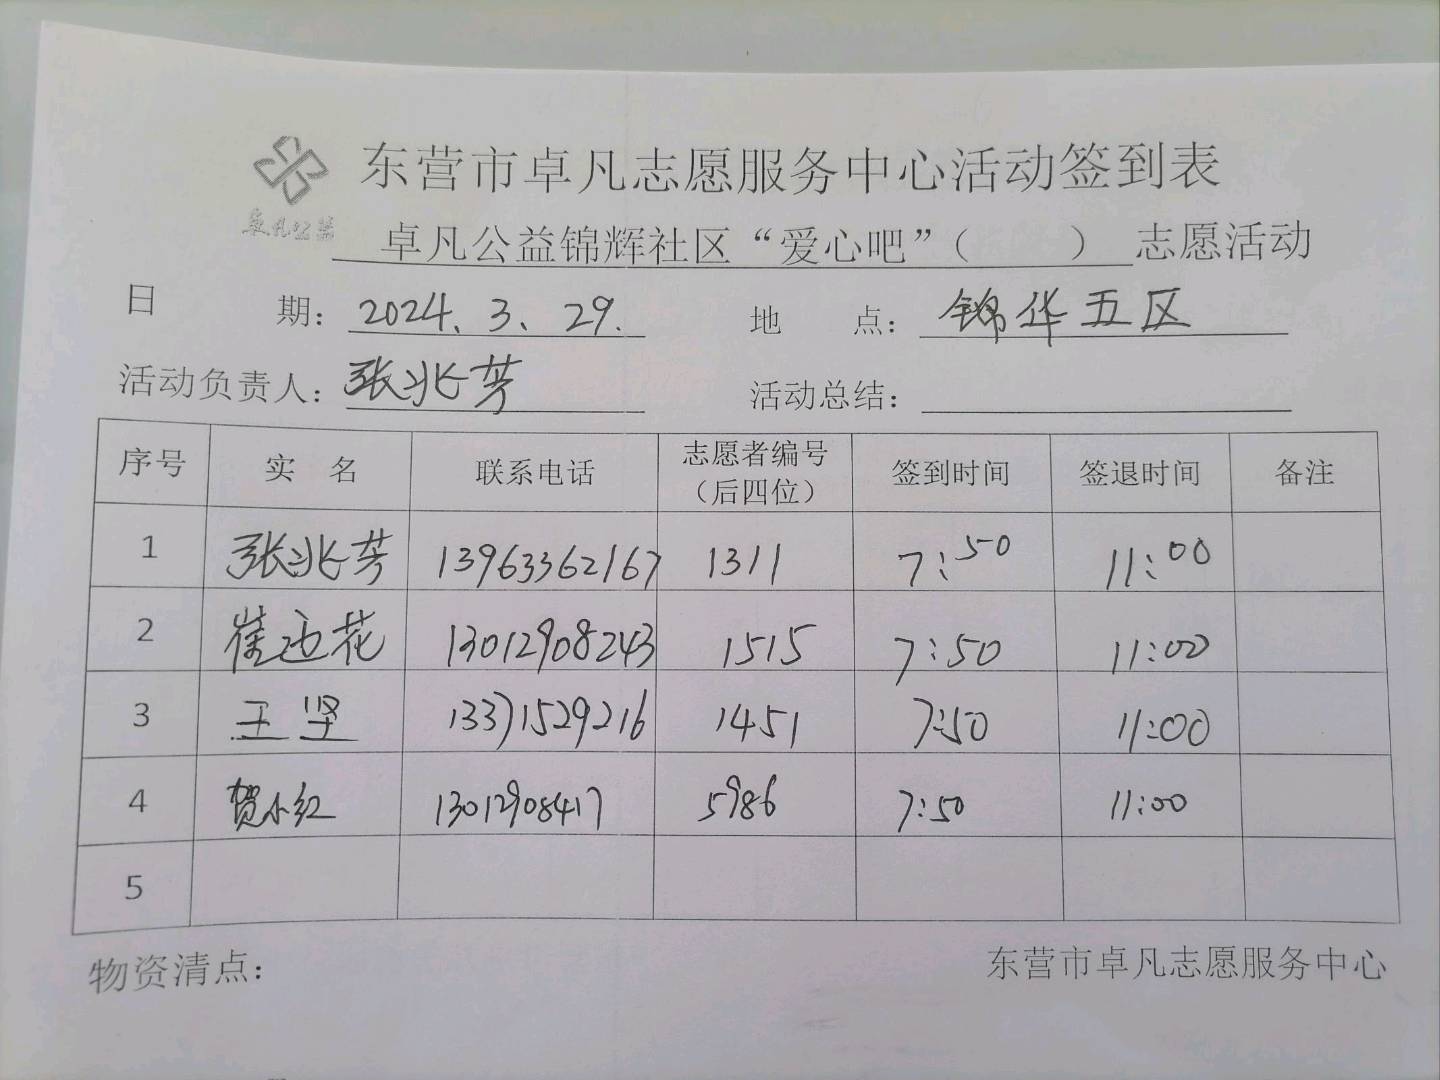 东营市卓凡志愿服务中心活动签到表
卓凡公益
卓凡公益锦辉社区“爱心吧”（　　）志愿活动
日 期：2024.3.29. 地 点：锦华五区
活动负责人：张兆芳 活动总结：
序号 实 名 联系电话 志愿者编号（后四位） 签到时间 签退时间 备注
1 张兆芳 13963362167 1311 7:50 11:00
2 崔迎花 13012908243 1515 7:50 11:00
3 王坚 13371529216 1451 7:50 11:00
4 贺小红 13012908417 5986 7:50 11:00
5
物资清点： 东营市卓凡志愿服务中心